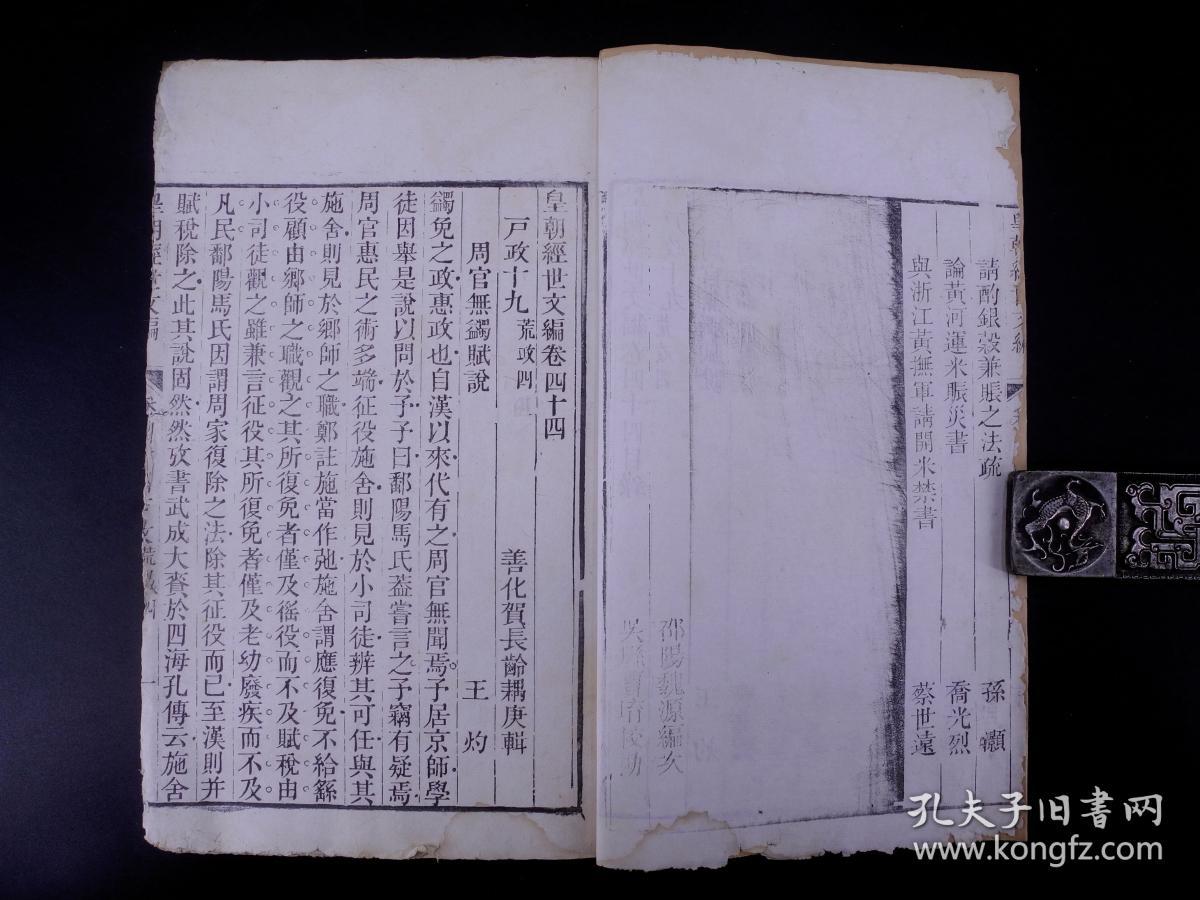 請酌銀穀兼賬之法疏 孫灝
論黃河運米賬災書 喬光烈
與浙江黃撫軍請開米禁書 蔡世遠
邵陽魏源編次
皇朝經世文編卷四十四
戶政十九 荒政四 善化賀長齡耦庚輯
周官無蠲賦說 王灼
蠲免之政惠政也自漢以來代有之周官無聞焉予居京師學
徒因舉是說以問於予予曰鄱陽馬氏葢嘗言之予竊有疑焉
周官惠民之術多端征役施舍則見於小司徒辨其可任與其
施舍則見於鄉師之職鄭註施當作弛施舍謂應復免不給繇
役顧由鄉師之職觀之其所復免者僅及徭役而不及賦稅由
小司徒觀之雖兼言征役其所復免者僅及老幼廢疾而不及
凡民鄱陽馬氏因謂周家復除之法除其征役而已至漢則并
賦稅除之此其說固然然攷書武成大賚於四海孔傳云施舍
孔夫子旧书网
www.kongfz.com